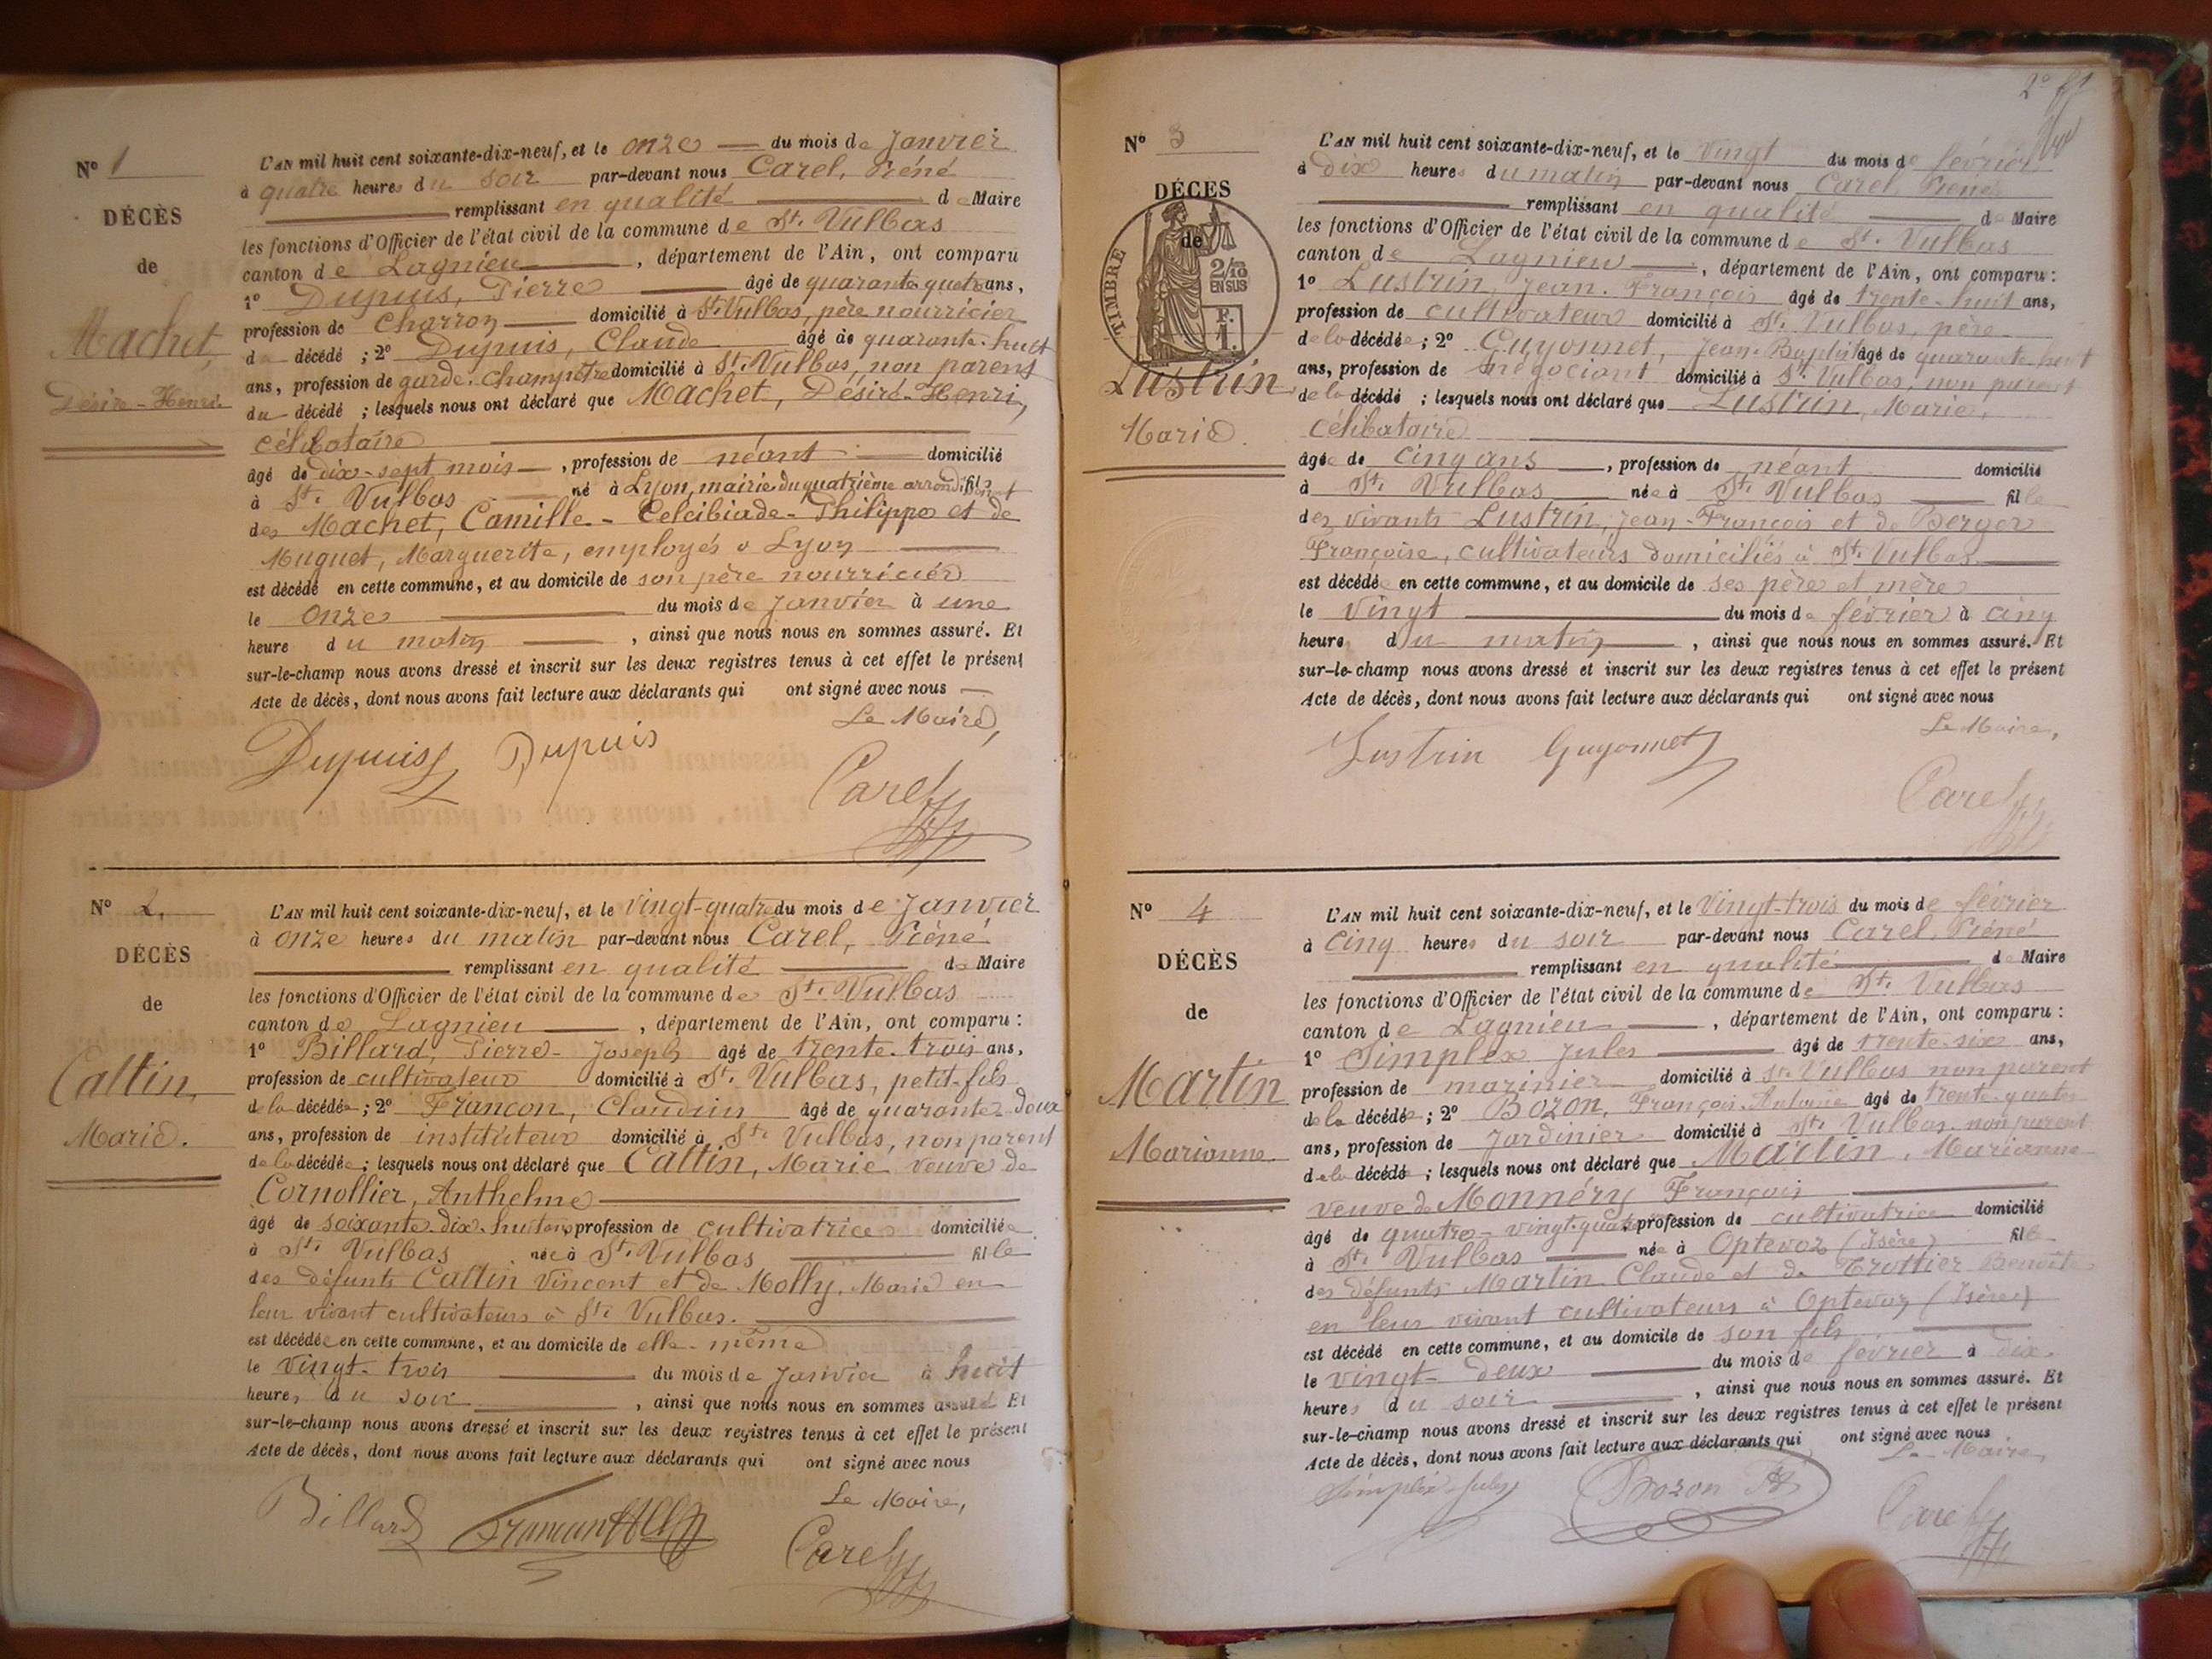 N° 1
DÉCÈS
de
Machet,
Désiré-Henri.
L'AN mil huit cent soixante-dix-neuf, et le onze du mois de Janvier
à quatre heures du soir par-devant nous Carel, Réné
remplissant en qualité de Maire
les fonctions d'Officier de l'état civil de la commune de St. Vulbas
canton de Lagnieu, département de l'Ain, ont comparu
1° Dupuis, Pierre âgé de quarante quatre ans,
profession de charron domicilié à St. Vulbas, père nourricier
du décédé ; 2° Dupuis, Claude âgé de quarante-huit
ans, profession de garde-champêtre domicilié à St. Vulbas, non parent
du décédé ; lesquels nous ont déclaré que Machet, Désiré-Henri,
célibataire
âgé de dix-sept mois, profession de néant domicilié
à St. Vulbas né à Lyon, mairie du quatrième arrondissement fils
des Machet, Camille-Celcibiade-Philippe et de
Muguet, Marguerite, employés à Lyon
est décédé en cette commune, et au domicile de son père nourricier
le onze du mois de Janvier à une
heure du matin, ainsi que nous nous en sommes assuré. Et
sur-le-champ nous avons dressé et inscrit sur les deux registres tenus à cet effet le présent
Acte de décès, dont nous avons fait lecture aux déclarants qui ont signé avec nous
Le Maire,
Dupuis Dupuis
Carel
N° 2.
DÉCÈS
de
Cattin,
Marie.
L'AN mil huit cent soixante-dix-neuf, et le vingt-quatre du mois de Janvier
à onze heures du matin par-devant nous Carel, Réné
remplissant en qualité de Maire
les fonctions d'Officier de l'état civil de la commune de St. Vulbas
canton de Lagnieu, département de l'Ain, ont comparu :
1° Billard, Pierre-Joseph âgé de trente-trois ans,
profession de cultivateur domicilié à St. Vulbas, petit-fils
de la décédée ; 2° Francon, Claudius âgé de quarante-deux
ans, profession de instituteur domicilié à St. Vulbas, non parent
de la décédée ; lesquels nous ont déclaré que Cattin, Marie veuve de
Cornollier, Anthelme
âgé de soixante-dix-huit ans, profession de cultivatrice domiciliée
à St. Vulbas née à St. Vulbas fille
des défunts Cattin Vincent et de Molly, Marie en
leur vivant cultivateurs à St. Vulbas.
est décédée en cette commune, et au domicile de elle-même
le vingt-trois du mois de Janvier à huit
heures du soir, ainsi que nous nous en sommes assuré. Et
sur-le-champ nous avons dressé et inscrit sur les deux registres tenus à cet effet le présent
Acte de décès, dont nous avons fait lecture aux déclarants qui ont signé avec nous
Le Maire,
Billard
Carel
2e
N° 3
DÉCÈS
de
TIMBRE
2/10
EN SUS
F.
1.
Lustrin
Marie.
L'AN mil huit cent soixante-dix-neuf, et le vingt du mois de février
à dix heures du matin par-devant nous Carel, Réné
remplissant en qualité de Maire
les fonctions d'Officier de l'état civil de la commune de St. Vulbas
canton de Lagnieu, département de l'Ain, ont comparu :
1° Lustrin, Jean-François âgé de trente-huit ans,
profession de cultivateur domicilié à St. Vulbas, père
de la décédée ; 2° Guyonnet, Jean-Baptiste âgé de quarante-huit
ans, profession de négociant domicilié à St. Vulbas, non parent
de la décédé ; lesquels nous ont déclaré que Lustrin, Marie,
célibataire
âgée de cinq ans, profession de néant domicilié
à St. Vulbas née à St. Vulbas fille
des vivants Lustrin, Jean-François et de Berger
Françoise, cultivateurs domiciliés à St. Vulbas
est décédée en cette commune, et au domicile de ses père et mère
le vingt du mois de février à cinq
heures du matin, ainsi que nous nous en sommes assuré. Et
sur-le-champ nous avons dressé et inscrit sur les deux registres tenus à cet effet le présent
Acte de décès, dont nous avons fait lecture aux déclarants qui ont signé avec nous
Le Maire,
Lustrin Guyonnet
Carel
N° 4
DÉCÈS
de
Martin
Marianne.
L'AN mil huit cent soixante-dix-neuf, et le vingt-trois du mois de février
à cinq heures du soir par-devant nous Carel, Réné
remplissant en qualité de Maire
les fonctions d'Officier de l'état civil de la commune de St. Vulbas
canton de Lagnieu, département de l'Ain, ont comparu :
1° Simplex Jules âgé de trente-six ans,
profession de marinier domicilié à St. Vulbas non parent
de la décédée ; 2° Bozon, François-Antoine âgé de trente-quatre
ans, profession de jardinier domicilié à St. Vulbas, non parent
de la décédé ; lesquels nous ont déclaré que Martin, Marianne
veuve de Monnéry François
âgé de quatre-vingt-quatre profession de cultivatrice domicilié
à St. Vulbas née à Optevoz (Isère) fille
des défunts Martin Claude et de Trottier Benoîte
en leur vivant cultivateurs à Optevoz (Isère)
est décédé en cette commune, et au domicile de son fils
le vingt-deux du mois de février à dix
heures du soir, ainsi que nous nous en sommes assuré. Et
sur-le-champ nous avons dressé et inscrit sur les deux registres tenus à cet effet le présent
Acte de décès, dont nous avons fait lecture aux déclarants qui ont signé avec nous
Le Maire
Simplex Jules Bozon
Carel